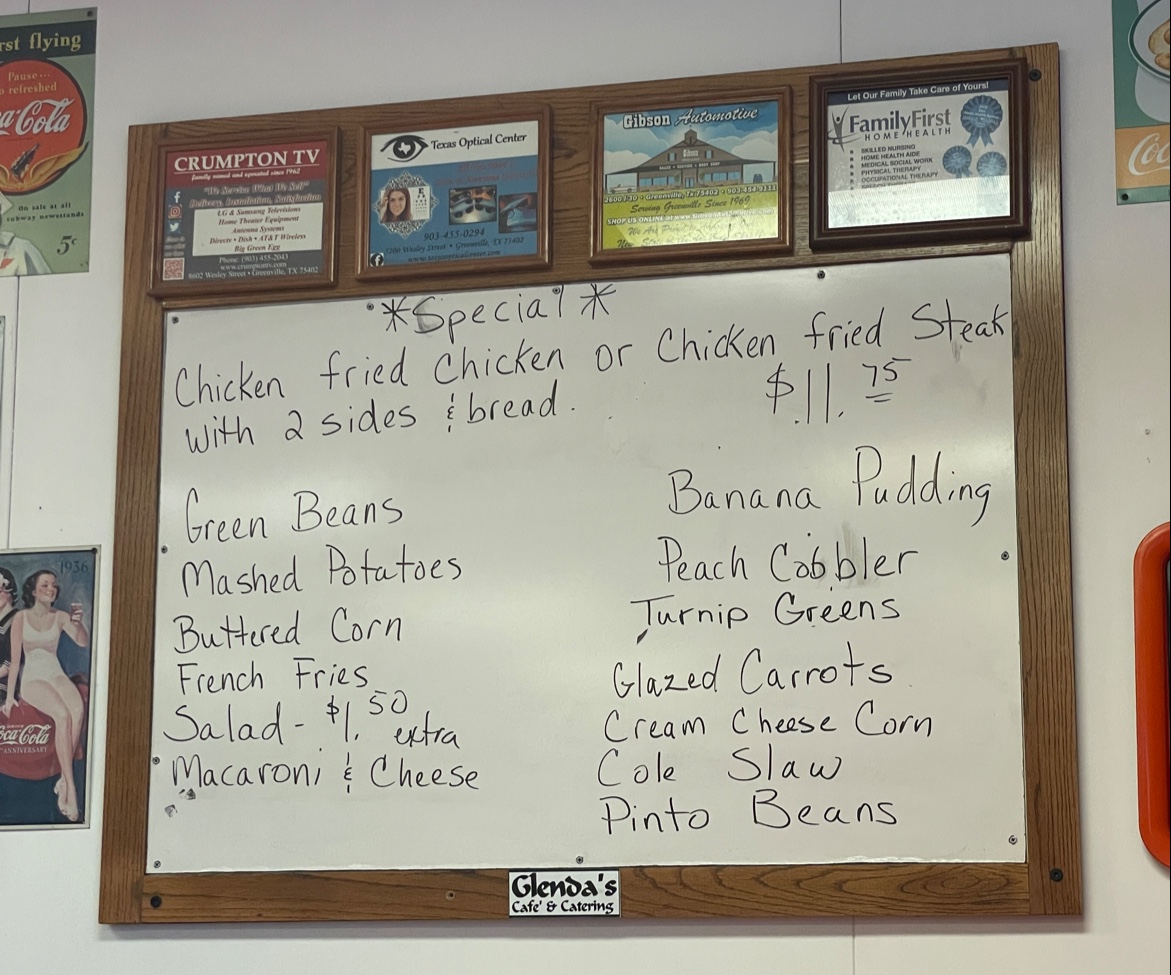 rst flying
Pause...
refreshed
a-Cola
On sale at all
subway newsstands
5¢
CRUMPTON TV
family owned and operated since 1962
"We Service What We Sell"
Delivery, Installation, Satisfaction
LG & Samsung Televisions
Home Theater Equipment
Antenna Systems
Directv • Dish • AT&T Wireless
Big Green Egg
Phone: (903) 455-2043
www.crumptontv.com
8602 Wesley Street • Greenville, TX 75402
Texas Optical Center
903-455-0294
Wesley Street • Greenville, TX 75402
Gibson Automotive
Gibson
2600 I-30 • Greenville, Tx 75402 • 903-454-3133
Serving Greenville Since 1969
SHOP US ONLINE at
Let Our Family Take Care of Yours!
FamilyFirst
HOME HEALTH
SKILLED NURSING
HOME HEALTH AIDE
MEDICAL SOCIAL WORK
PHYSICAL THERAPY
OCCUPATIONAL THERAPY
*Special*
Chicken fried Chicken or Chicken fried Steak
with 2 sides & bread. $11.75
Green Beans
Mashed Potatoes
Buttered Corn
French Fries
Salad - $1.50 extra
Macaroni & Cheese
Banana Pudding
Peach Cobbler
Turnip Greens
Glazed Carrots
Cream Cheese Corn
Cole Slaw
Pinto Beans
Glenda's
Cafe' & Catering
1936
Coca-Cola
ANNIVERSARY
Coc